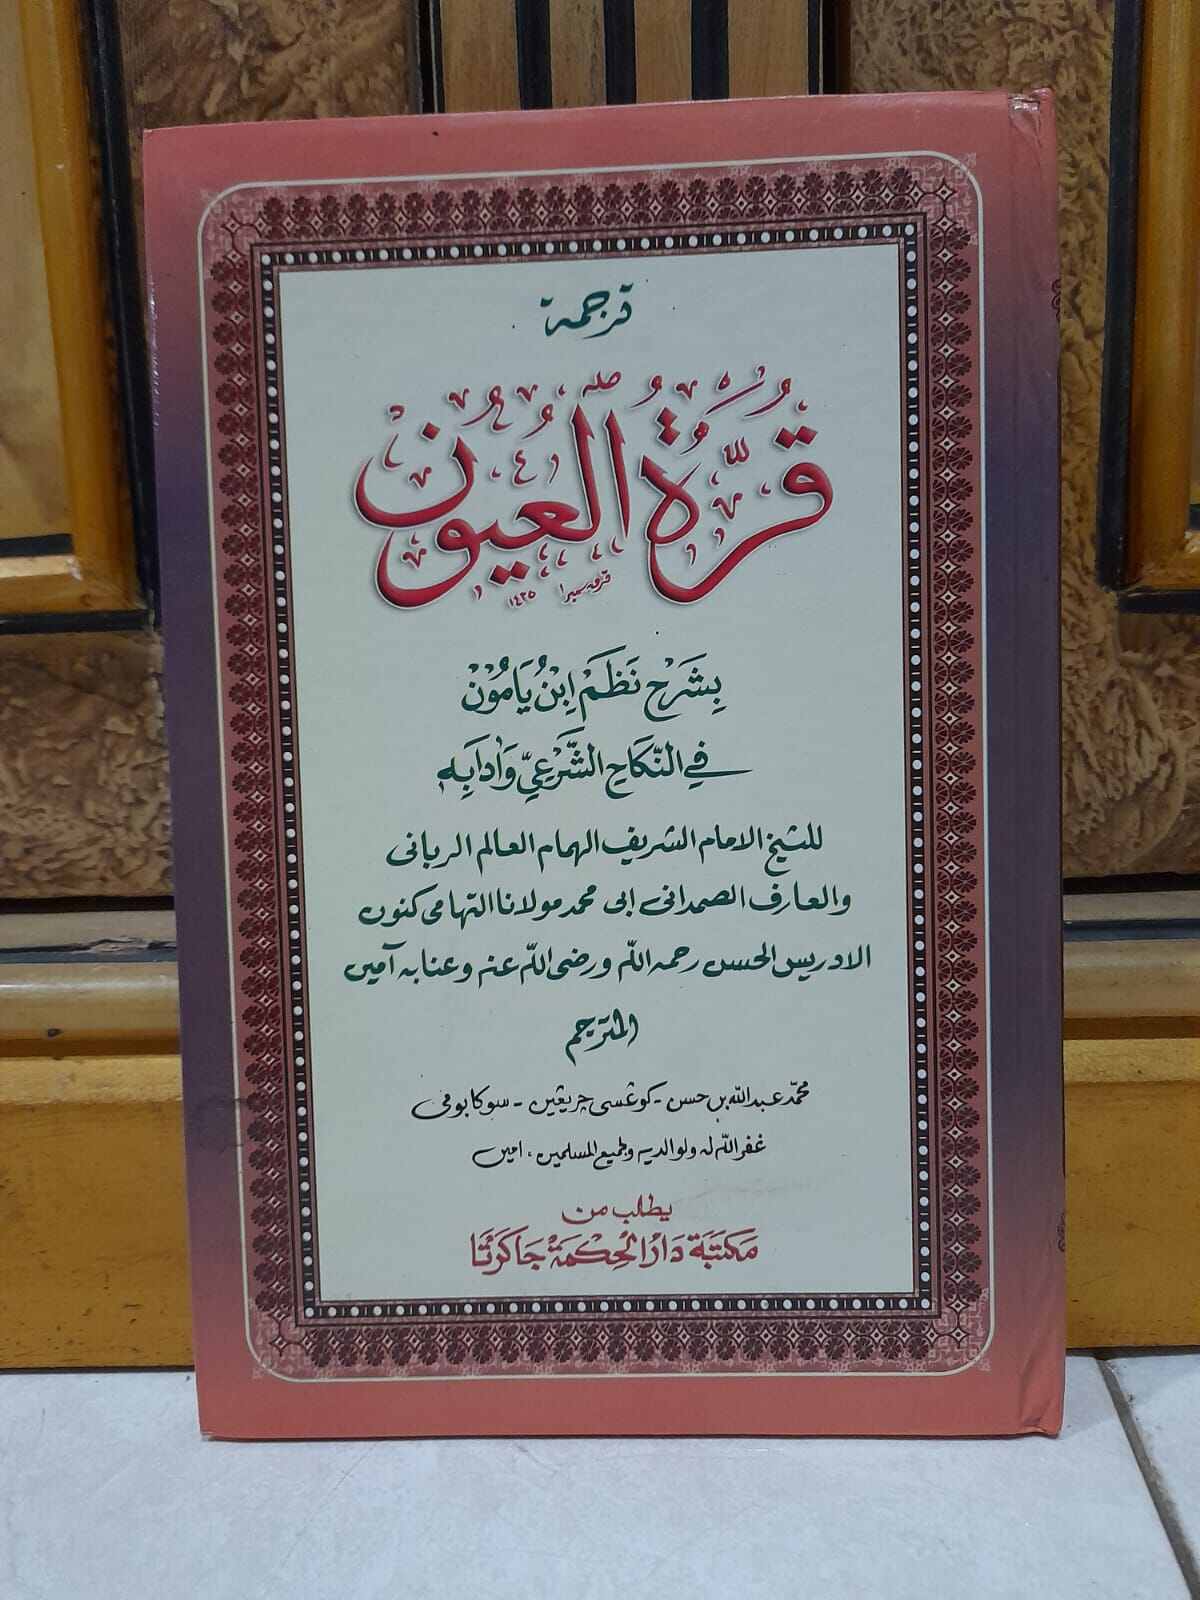 ترجمة
قُرَّةُ الْعُيُوْنِ
١٤٣٥
بِشَرْحِ نَظَمْ اِبْنُ يَامُوْنْ
فِي النِّكَاحِ الشَّرْعِيّ وَاٰدَابِهِ
للشيخ الامام الشريف الهمام العالم الربانى
والعارف الصمدانى ابى محمد مولانا التهامى كنون
الادريس الحسن رحمه الله ورضى الله عنه وعنا به آمين
المترجم
محمّد عبد الله بن حسن - كوڠسى چريڠين - سوكابومى
غفر الله له ولوالديه ولجميع المسلمين ، امين
يطلب من
مَكتَبَة دَارُ الْحِكْمَةْ جَاكَرْتَا